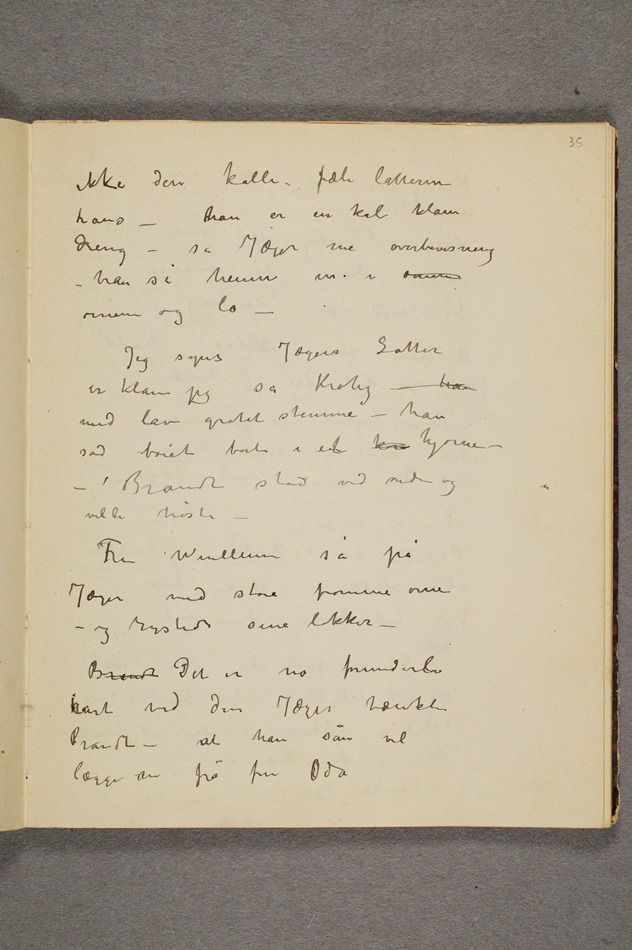 35
ikke den kalle. fæle latteren
hans – han er en kal klam
dreng – sa Jæger me overbevisning
– han så henne in i ømene
øinene og lo –
Jeg synes Jægers Latter
er klam jeg sa Krohg – han
med lav grøtet stemme – han
sad bøiet bort i et kro hjørne –
– ! Brandt stod ved siden og
vilde høste –
Fru Wullum så på
Jæger med store fromme øine
– og rystede sine lokker –
Brandt Det er no forunderli
kart ved den Jæger tænkte
Brandt – at han sån vil
lægge an på fru Oda